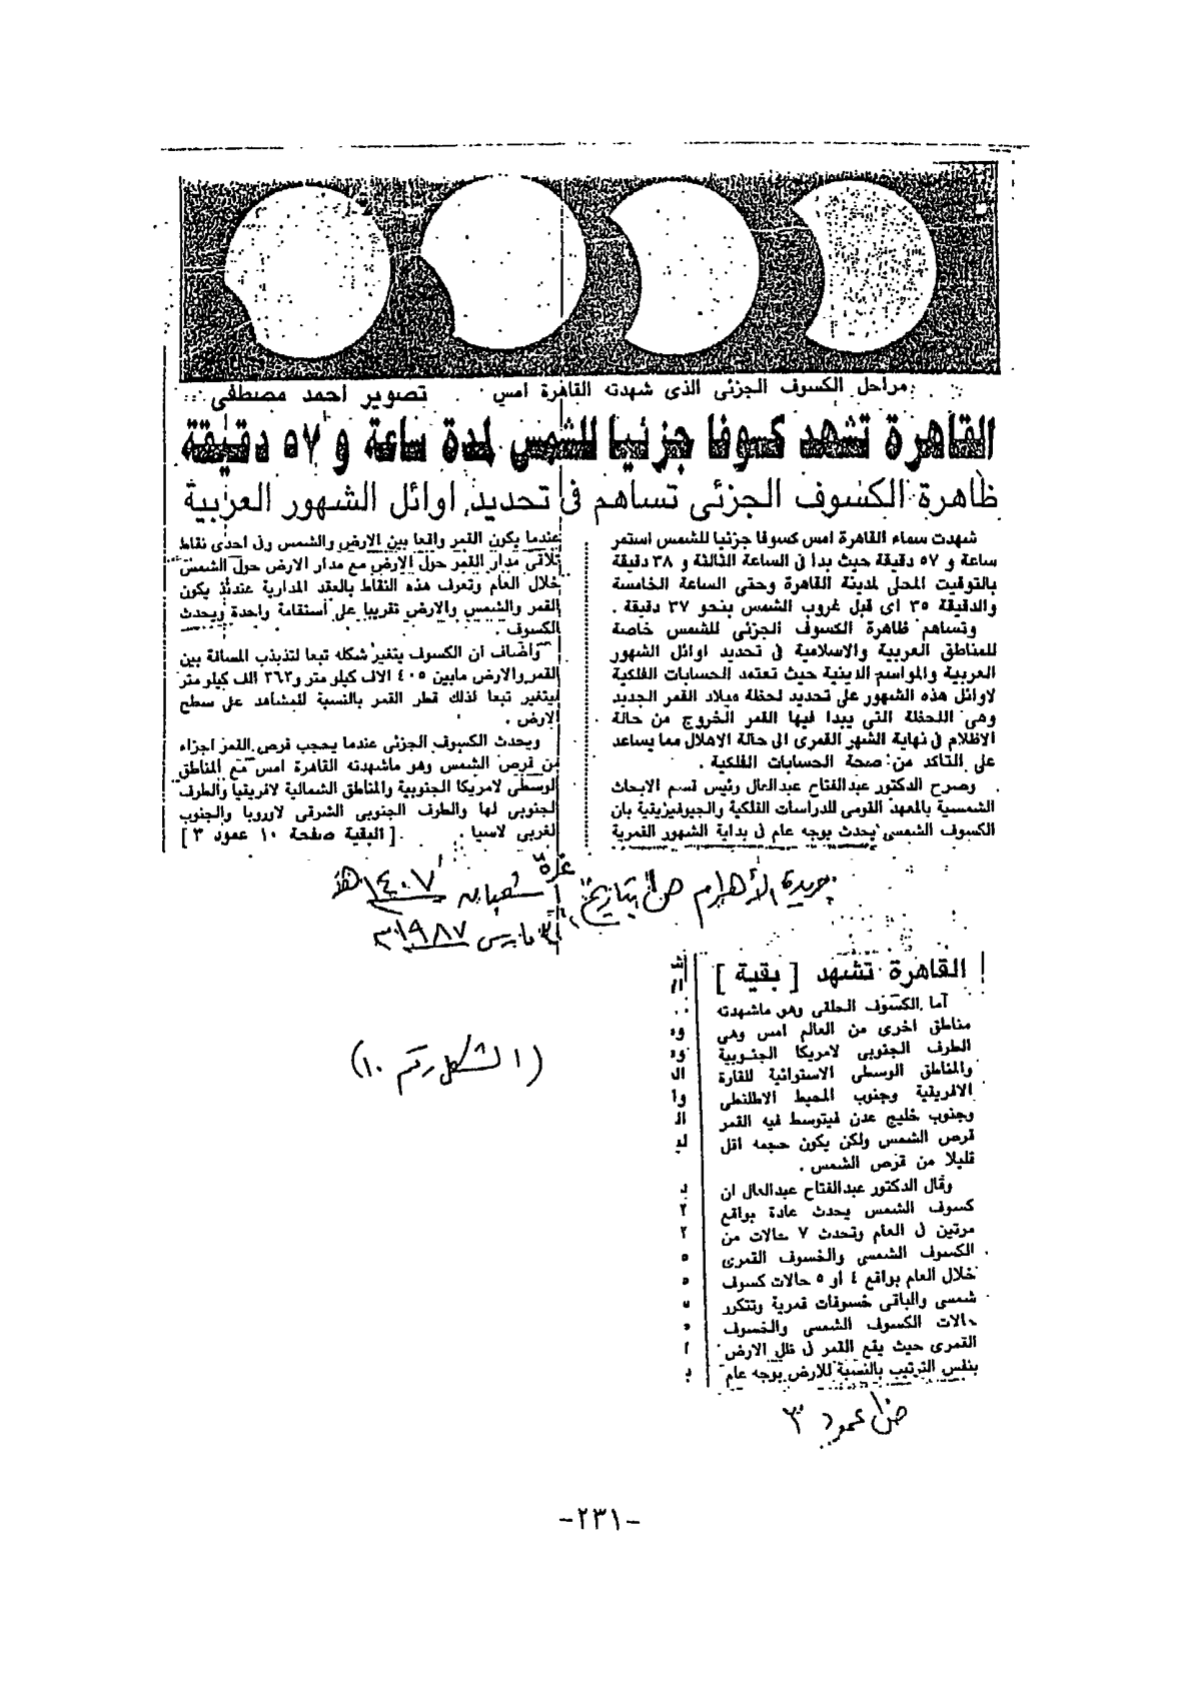 مراحل الكسوف الجزئى الذى شهدته القاهرة امس . تصوير احمد مصطفى
القاهرة تشهد كسوفا جزئيا للشمس لمدة ساعة و ٥٧ دقيقة
ظاهرة الكسوف الجزئى تساهم فى تحديد اوائل الشهور العربية
شهدت سماء القاهرة امس كسوفا جزئيا للشمس استمر
ساعة و ٥٧ دقيقة حيث بدأ فى الساعة الثالثة و ٣٨ دقيقة
بالتوقيت المحلى لمدينة القاهرة وحتى الساعة الخامسة
والدقيقة ٣٥ اى قبل غروب الشمس بنحو ٣٧ دقيقة .
وتساهم ظاهرة الكسوف الجزئى للشمس خاصة
للمناطق العربية والاسلامية فى تحديد اوائل الشهور
العربية والمواسم الدينية حيث تعتمد الحسابات الفلكية
لاوائل هذه الشهور على تحديد لحظة ميلاد القمر الجديد
وهى اللحظة التى يبدا فيها القمر الخروج من حالة
الاظلام فى نهاية الشهر القمرى الى حالة الاهلال مما يساعد
على التاكد من صحة الحسابات الفلكية .
وصرح الدكتور عبدالفتاح عبدالعال رئيس قسم الابحاث
الشمسية بالمعهد القومى للدراسات الفلكية والجيوفيزيقية بان
الكسوف الشمسى يحدث بوجه عام فى بداية الشهور القمرية
عندما يكون القمر واقعا بين الارض والشمس وفى احدى نقاط
تلاقى مدار القمر حول الارض مع مدار الارض حول الشمس
خلال العام وتعرف هذه النقاط بالعقد المدارية عندئذ يكون
القمر والشمس والارض تقريبا على استقامة واحدة ويحدث
الكسوف .
واضاف ان الكسوف يتغير شكله تبعا لتذبذب المسافة بين
القمر والارض مابين ٤٠٥ الاف كيلو متر و٣٦٣ الف كيلو متر
يتغير تبعا لذلك قطر القمر بالنسبة للمشاهد على سطح
الارض .
ويحدث الكسوف الجزئى عندما يحجب قرص القمر اجزاء
من قرص الشمس وهو ماشهدته القاهرة امس مع المناطق
الوسطى لامريكا الجنوبية والمناطق الشمالية لافريقيا والطرف
الجنوبى لها والطرف الجنوبى الشرقى لاوروبا والجنوب
الغربى لاسيا . [ البقية صفحة ١٠ عمود ٣ ]
جريدة الأهرام ص ١ بتاريخ شعبان ١٤٠٧ هـ
مارس ١٩٨٧ م
القاهرة تشهد [ بقية ]
أما الكسوف الحلقى وهو ماشهدته
مناطق اخرى من العالم امس وهى
الطرف الجنوبى لامريكا الجنوبية
والمناطق الوسطى الاستوائية للقارة
الافريقية وجنوب المحيط الاطلنطى
وجنوب خليج عدن فيتوسط فيه القمر
قرص الشمس ولكن يكون حجمه اقل
قليلا من قرص الشمس .
وقال الدكتور عبدالفتاح عبدالعال ان
كسوف الشمس يحدث عادة بواقع
مرتين فى العام وتحدث ٧ حالات من
الكسوف الشمسى والخسوف القمرى
خلال العام بواقع ٤ أو ٥ حالات كسوف
شمسى والباقى خسوفات قمرية وتتكرر
حالات الكسوف الشمسى والخسوف
القمرى حيث يقع القمر فى ظل الارض
بنفس الترتيب بالنسبة للارض بوجه عام
(الشكل رقم ١٠)
ص ١٠ عمود ٣
-٢٣١-